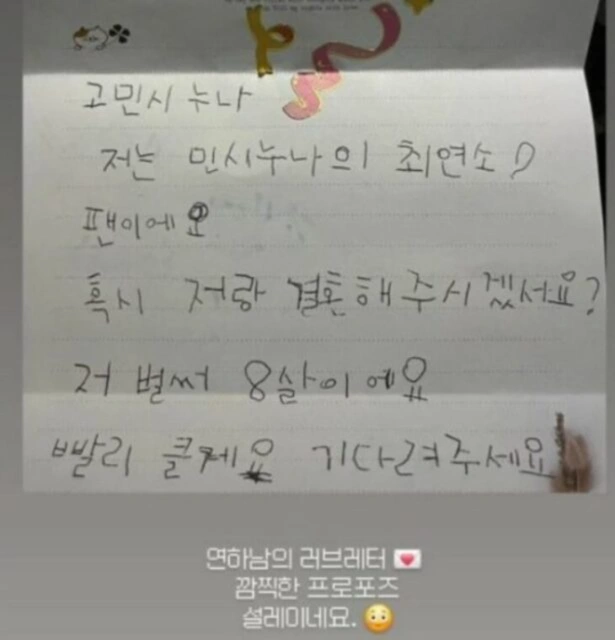 고민시 누나
저는 민시누나의 최연소
팬이에요
혹시 저랑 결혼해 주시겠서요?
저 벌써 8살이에요
빨리 클께요 기다려주세요
연하남의 러브레터 💌
깜찍한 프로포즈
설레이네요. 😳